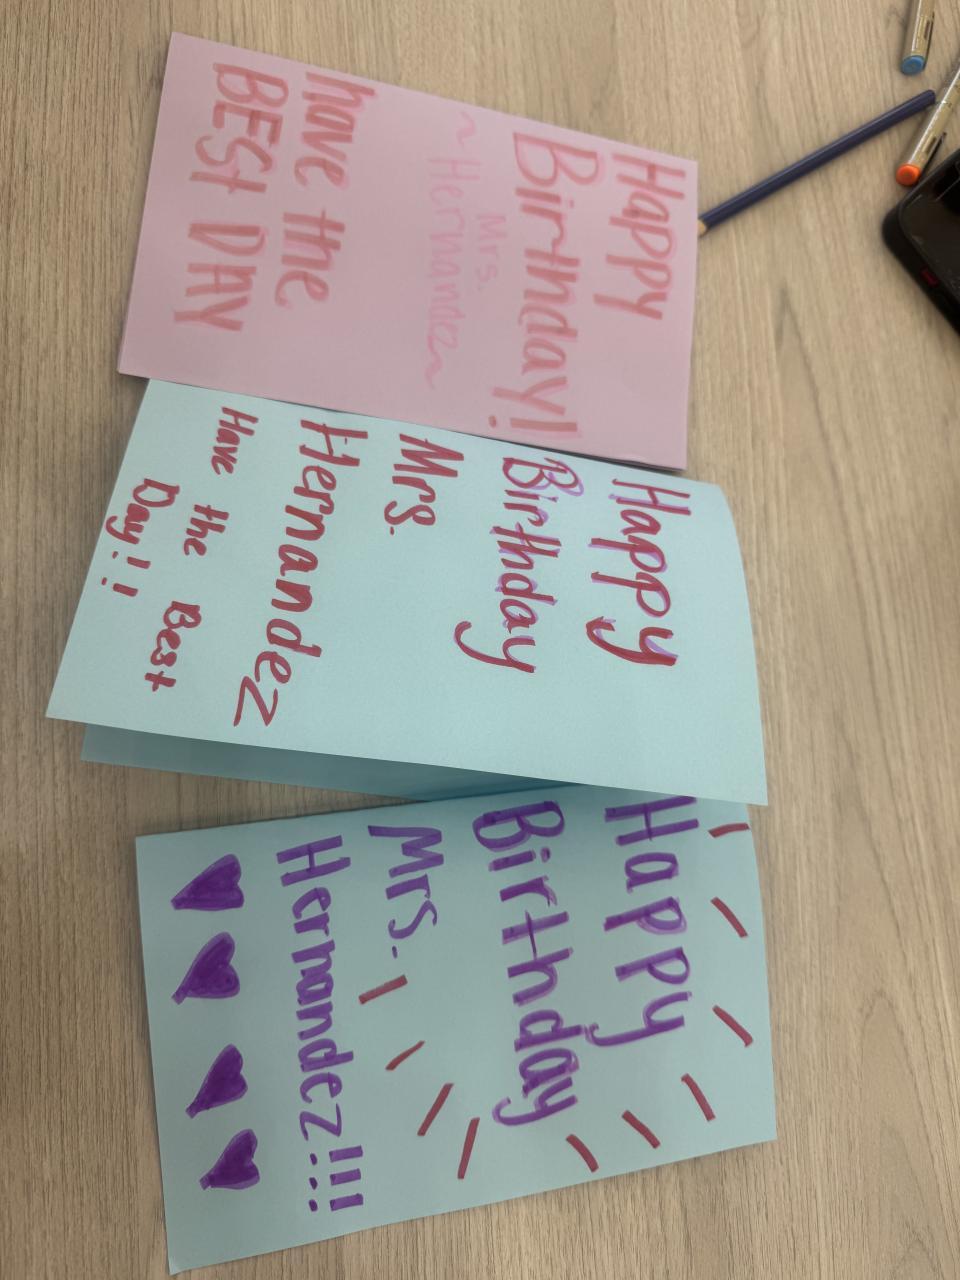 Happy
Birthday!
Mrs.
~Hernandez~
have the
BESt DAY
Happy
Birthday
Mrs.
Hernandez
Have the Best
Day!!
Happy
Birthday
Mrs.
Hernandez!!!